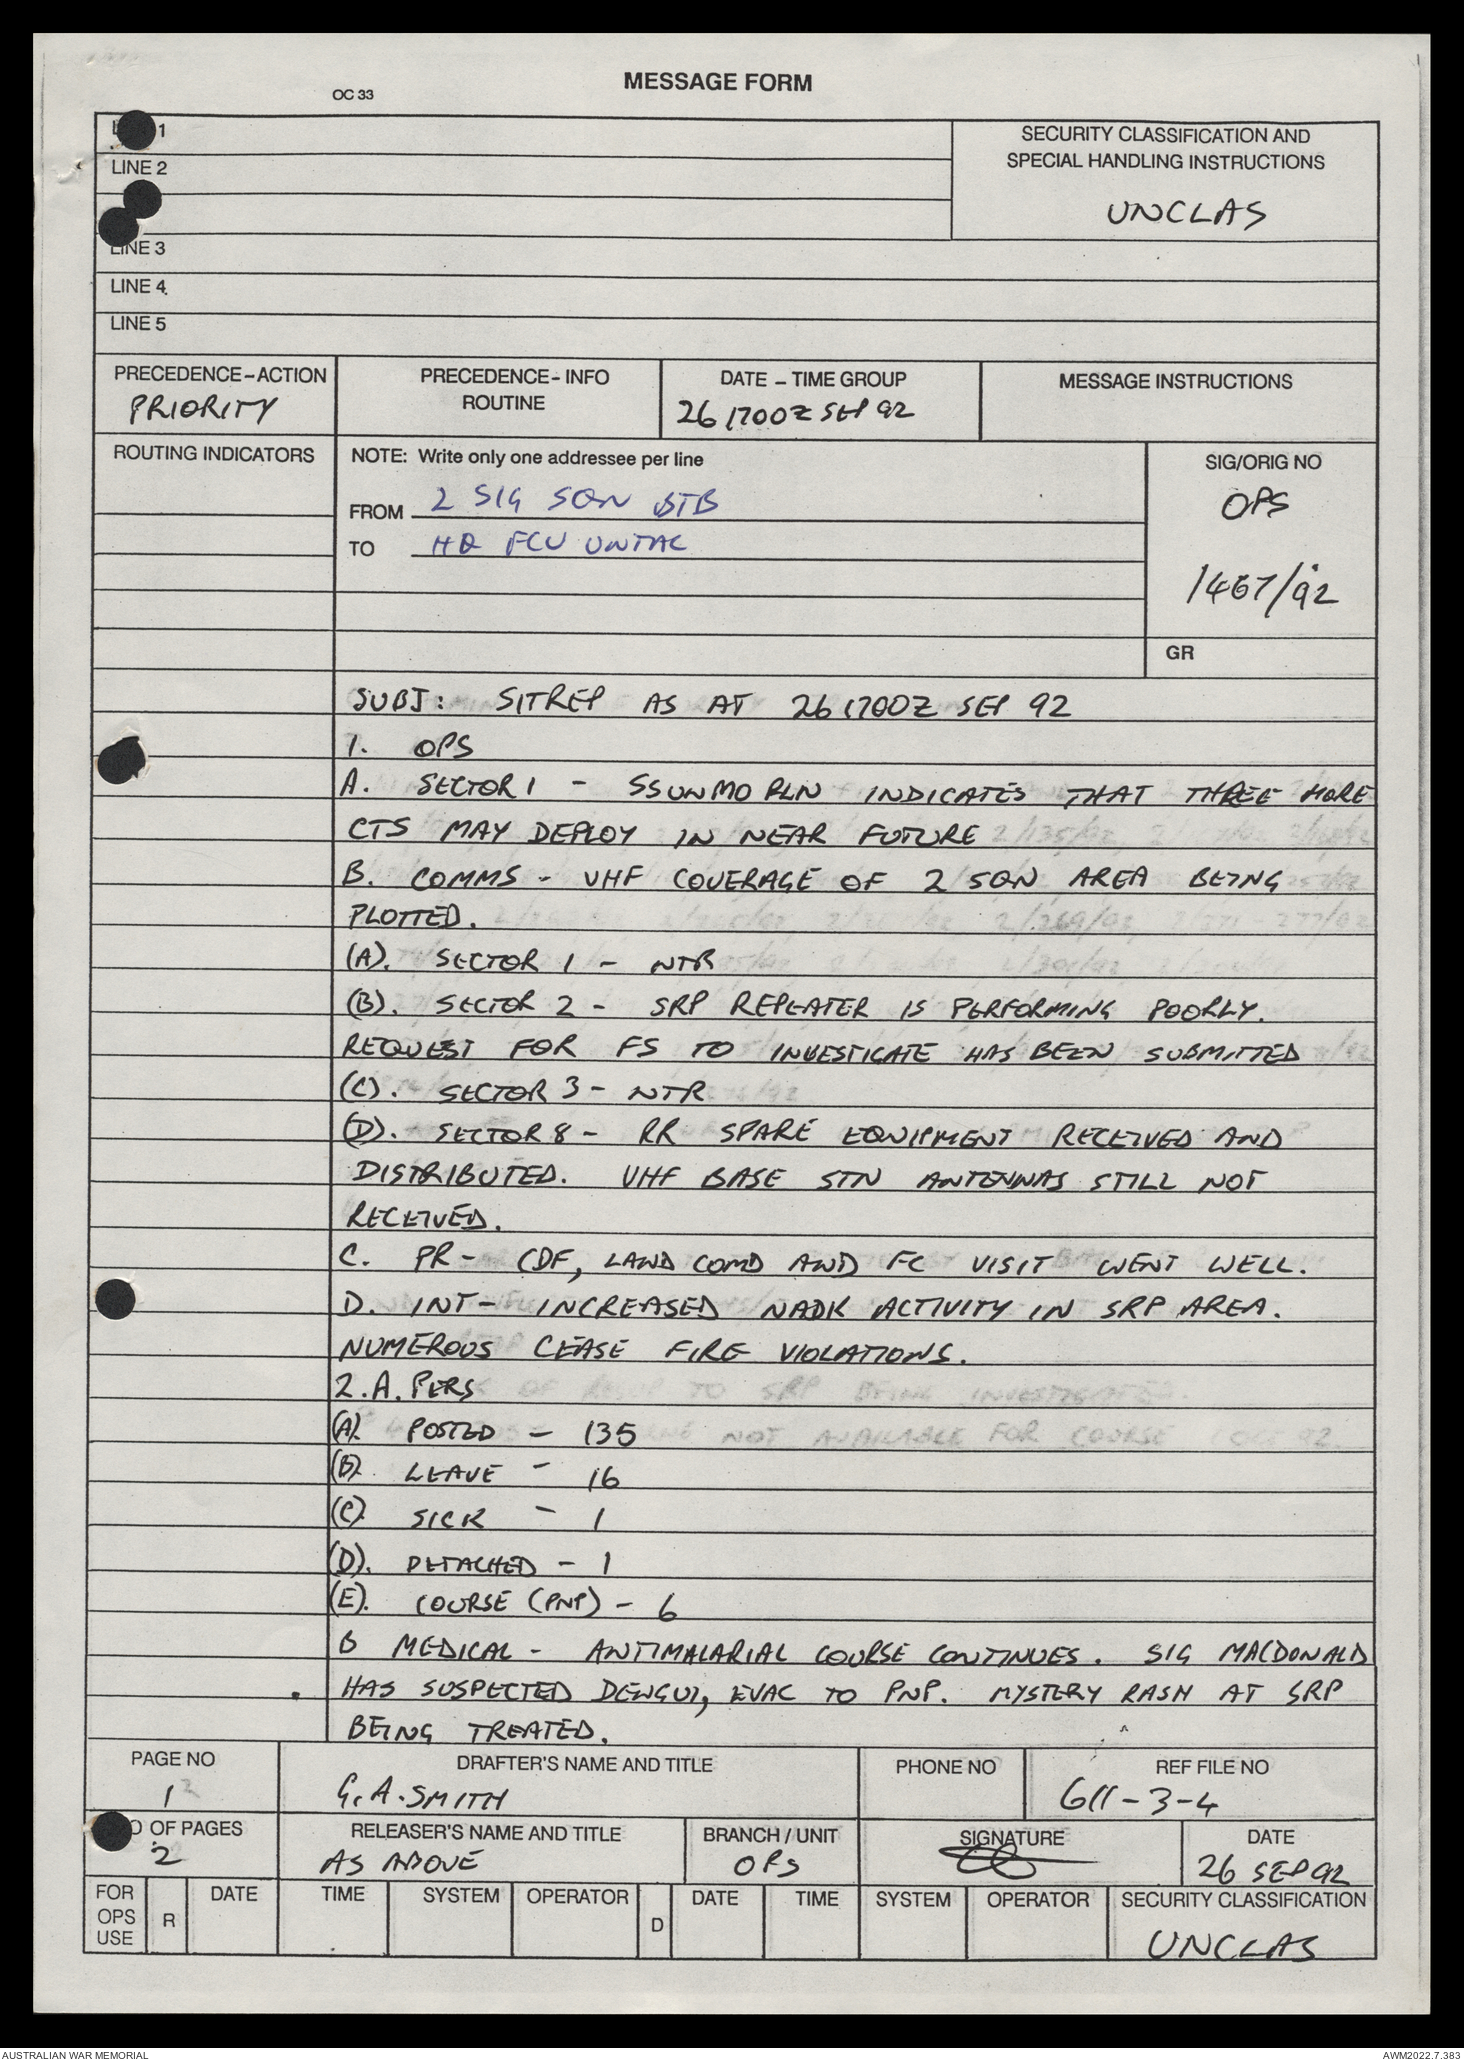 MESSAGE FORM
OC 33
1
LINE 2
LINE 3
LINE 4
LINE 5
SECURITY CLASSIFICATION AND
SPECIAL HANDLING INSTRUCTIONS
UNCLAS
PRECEDENCE-ACTION
PRIORITY
PRECEDENCE-INFO
ROUTINE
DATE - TIME GROUP
261700Z SEP 92
MESSAGE INSTRUCTIONS
ROUTING INDICATORS
NOTE: Write only one addressee per line
FROM 2 SIG SQN BTB
TO HQ FCU UNTAC
SIG/ORIG NO
OPS
1467/92
GR
SUBJ: SITREP AS AT 261700Z SEP 92
1. OPS
A. SECTOR 1 - SSUNMO PLN INDICATES THAT THREE MORE
CTS MAY DEPLOY IN NEAR FUTURE
B. COMMS - VHF COVERAGE OF 2 SQN AREA BEING
PLOTTED.
(A). SECTOR 1 - NTR
(B). SECTOR 2 - SRP REPEATER IS PERFORMING POORLY.
REQUEST FOR FS TO INVESTIGATE HAS BEEN SUBMITTED
(C). SECTOR 3 - NTR
(D). SECTOR 8 - RR SPARE EQUIPMENT RECEIVED AND
DISTRIBUTED. VHF BASE STN ANTENNAS STILL NOT
RECEIVED.
C. PR - CDF, LAND COMD AND FC VISIT WENT WELL.
D. INT - INCREASED NADK ACTIVITY IN SRP AREA.
NUMEROUS CEASE FIRE VIOLATIONS.
2.A. PERS
(A) POSTED - 135
(B) LEAVE - 16
(C) SICK - 1
(D). DETACHED - 1
(E). COURSE (PNP) - 6
B MEDICAL - ANTIMALARIAL COURSE CONTINUES. SIG MACDONALD
HAS SUSPECTED DENGUI, EVAC TO PNP. MYSTERY RASH AT SRP
BEING TREATED.
PAGE NO
1
DRAFTER'S NAME AND TITLE
G.A.SMITH
PHONE NO
REF FILE NO
611-3-4
O OF PAGES
2
RELEASER'S NAME AND TITLE
AS ABOVE
BRANCH / UNIT
OPS
SIGNATURE
DATE
26 SEP 92
FOR
OPS
USE
R
DATE
TIME
SYSTEM
OPERATOR
D
DATE
TIME
SYSTEM
OPERATOR
SECURITY CLASSIFICATION
UNCLAS
AUSTRALIAN WAR MEMORIAL
AWM2022.7.383